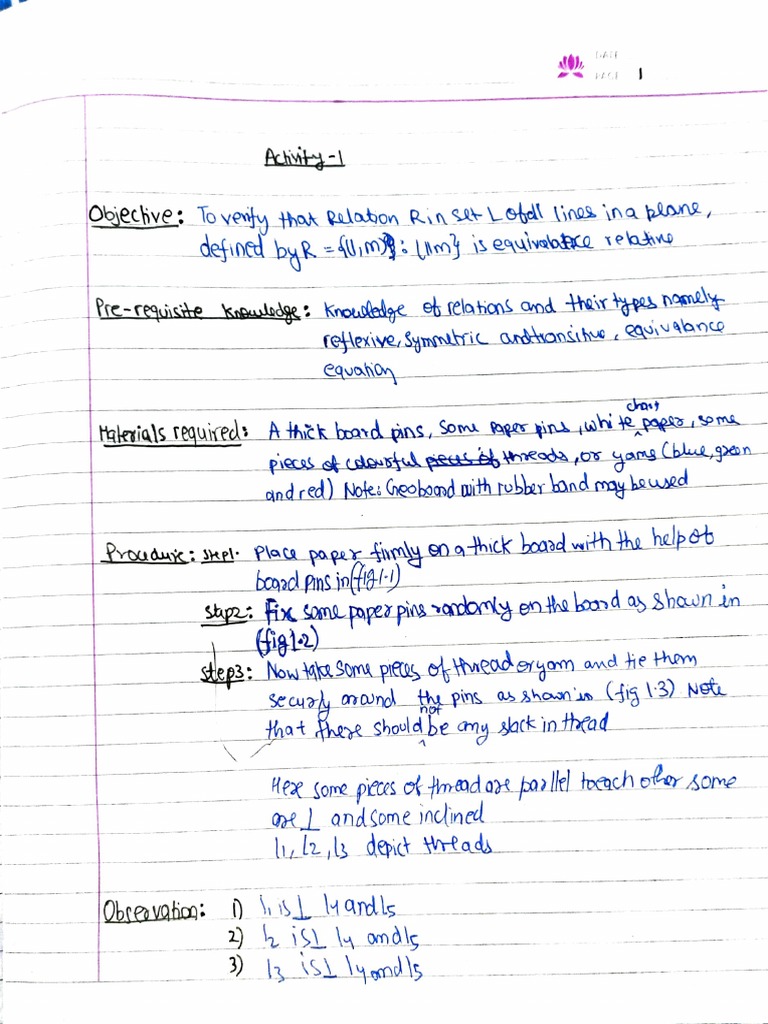 DATE
PAGE 1
Activity-1
Objective: To verify that Relation R in set L of all lines in a plane,
defined by R = {(l,m) : l||m} is equivalance relative
Pre-requisite knowledge: Knowledge of relations and their types namely
reflexive, symmetric and transitive, equivalance
equation
Materials required: A thick board pins, some paper pins, white chart paper, some
pieces of colourful pieces of threads, or yarns (blue, green
and red) Note: Geoboard with rubber band may be used
Procedure: step1. Place paper firmly on a thick board with the help of
board pins in (fig 1.1)
step2: Fix some paper pins randomly on the board as shown in
(fig 1.2)
step3: Now take some pieces of thread or yarn and tie them
securly around the pins as shown in (fig 1.3) Note
that there should not be any slack in thread
Here some pieces of thread are parallel to each other some
are ⊥ and some inclined
l1, l2, l3 depict threads
Observation: 1) l1 is ⊥ l4 and l5
2) l2 is ⊥ l4 and l5
3) l3 is ⊥ l4 and l5